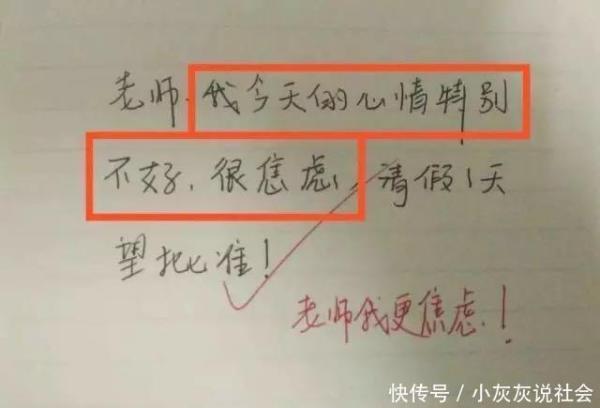 老师，我今天的心情特别
不好，很焦虑，请假1天
望批准！
老师我更焦虑！
快传号／小灰灰说社会